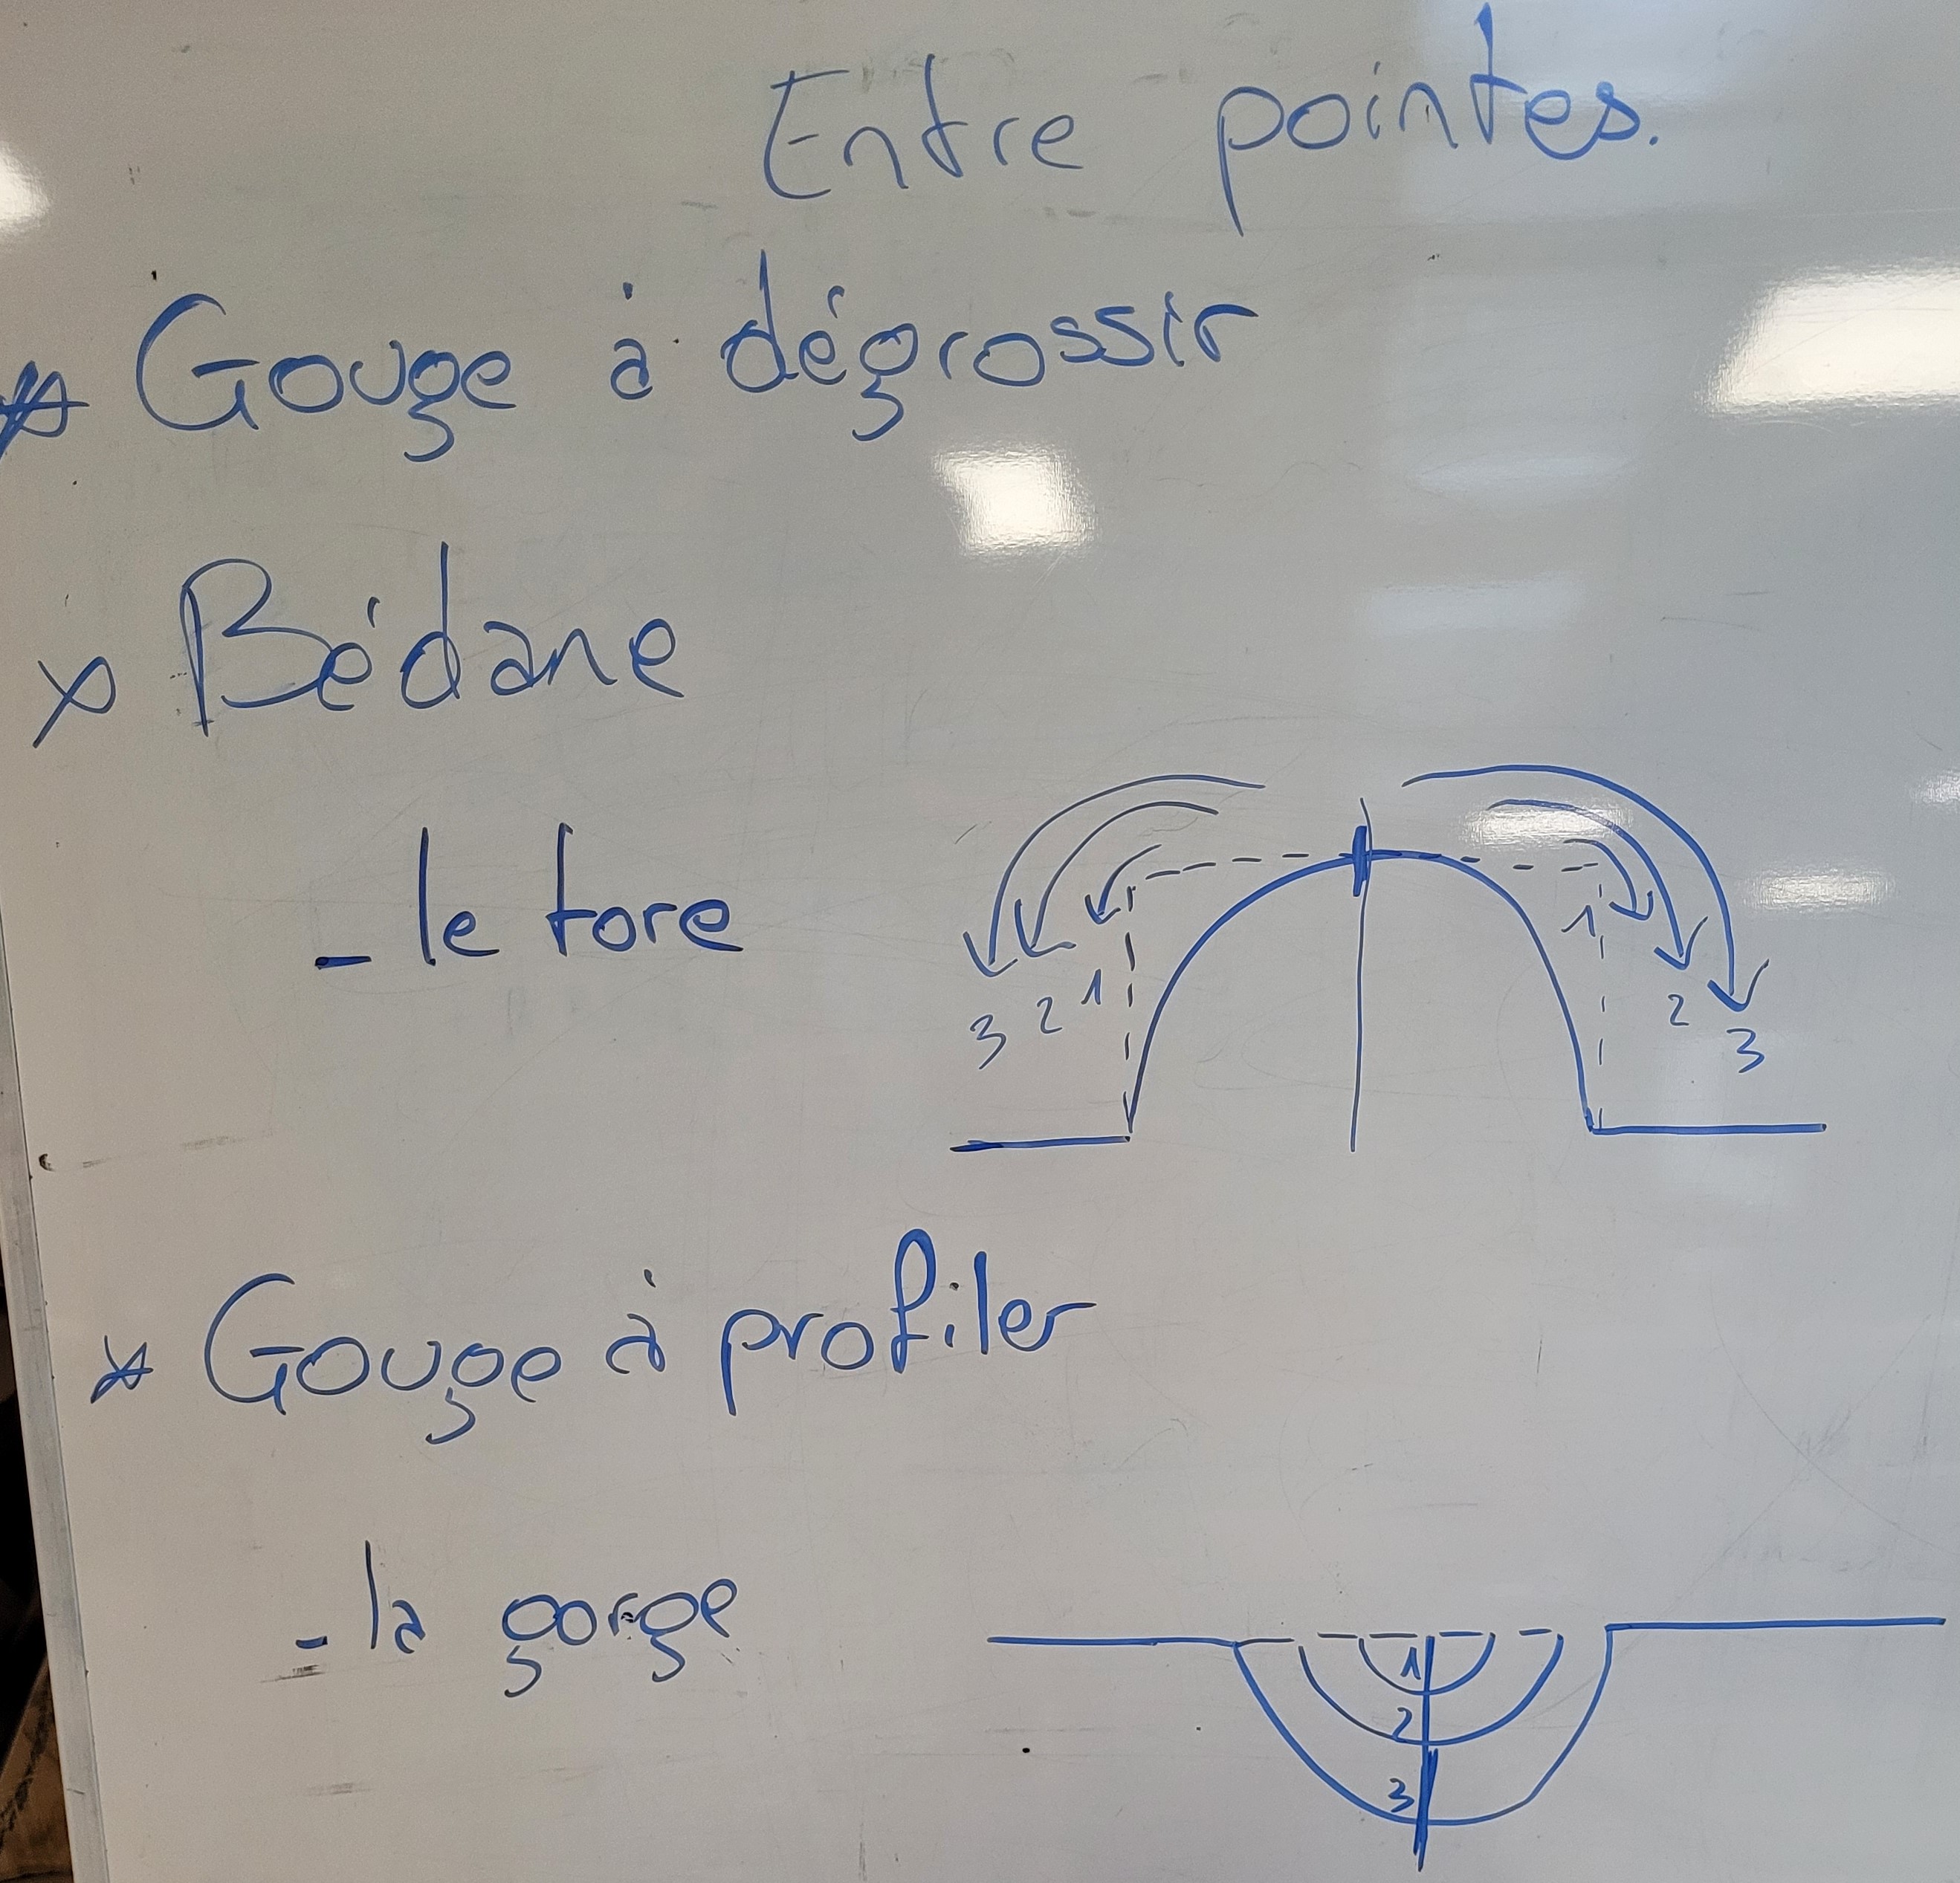 Entre pointes.
* Gouge à dégrossir
x Bédane
- le tore
1
3 2 1
2
3
* Gouge à profiler
- la gorge
1
2
3